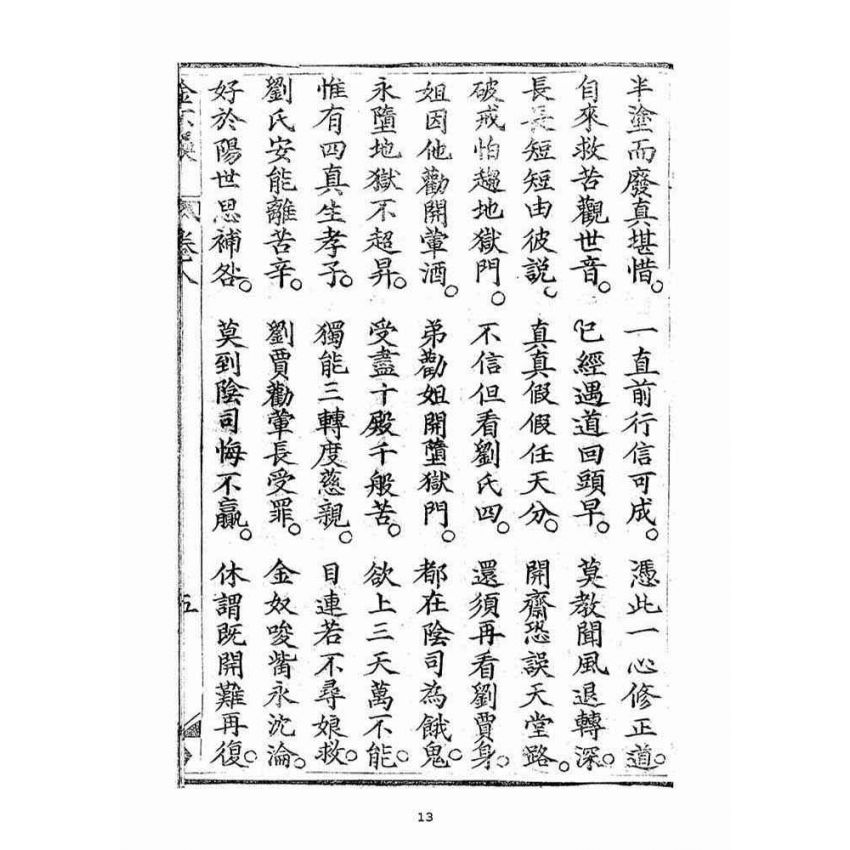 半塗而廢真堪惜。一直前行信可成。憑此一心修正道。
自來救苦觀世音。已經遇道回頭早。莫教聞風退轉深。
長長短短由彼說。真真假假任天分。開齋恐誤天堂路。
破戒怕趨地獄門。不信但看劉氏四。還須再看劉賈身。
姐因他勸開葷酒。弟勸姐開墮獄門。都在陰司為餓鬼。
永墮地獄不超昇。受盡十殿千般苦。欲上三天萬不能。
惟有四真生孝子。獨能三轉度慈親。目連若不尋娘救。
劉氏安能離苦辛。劉賈勸葷長受罪。金奴唆嘴永沈淪。
好於陽世思補咎。莫到陰司悔不贏。休謂既開難再復。
卷 五
13